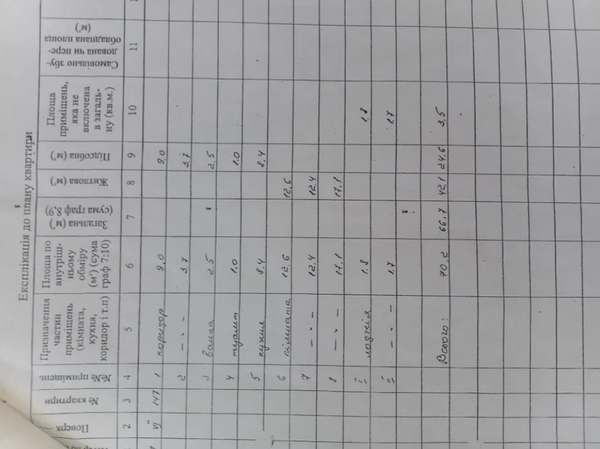 Експлікація до плану квартири
Поверх
№ квартири
№№ приміщень
Призначення
частин
приміщень
(кімната,
кухня,
коридор і т.п)
Площа по
внутріш-
ньому
обміру
(м²) (сума
граф 7;10)
Загальна (м²)
(сума граф 8,9)
Житлова (м²)
Підсобна (м²)
Площа
приміщень,
яка не
включена
в загаль-
ну (кв.м.)
Самовільно збу-
дована чи пере-
обладнана площа
(м²)
2 3 4 5 6 7 8 9 10 11
VI 147 1 коридор 9,0 9,0
2 - " - 3,7 3,7
3 ванна 2,5 2,5
4 туалет 1,0 1,0
5 кухня 8,4 8,4
6 кімната 12,6 12,6
7 - " - 12,4 12,4
8 - " - 17,1 17,1
I лоджія 1,8 1,8
II - " - 1,7 1,7
Всього: 70,2 66,7 42,1 24,6 3,5